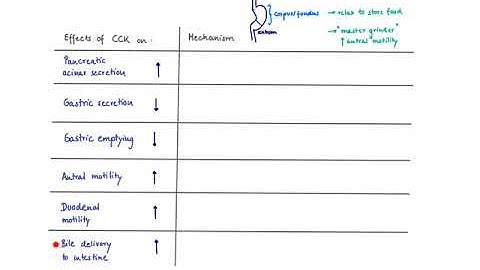 corpus/fundus → relax to store food
antrum → "master grinder"
↑ antral motility
Effects of CCK on: Mechanism
Pancreatic
acinar secretion ↑
Gastric secretion ↓
Gastric emptying ↓
Antral motility ↑
Duodenal
motility ↑
Bile delivery
to intestine ↑